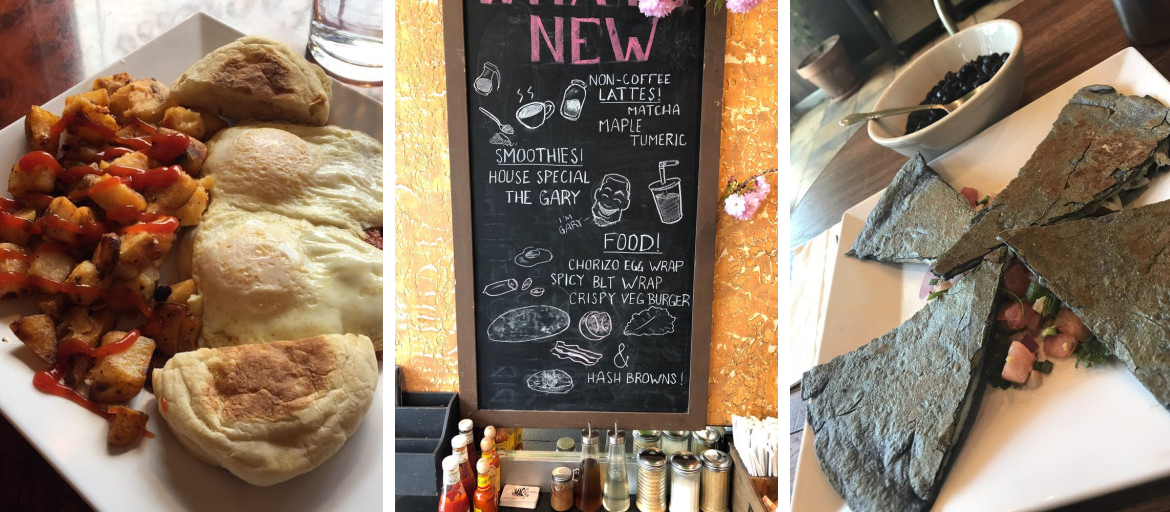 NEW
NON-COFFEE
LATTES!
MATCHA
MAPLE
TUMERIC
SMOOTHIES!
HOUSE SPECIAL
THE GARY
I'M
GARY
FOOD!
CHORIZO EGG WRAP
SPICY BLT WRAP
CRISPY VEG BURGER
&
HASH BROWNS!